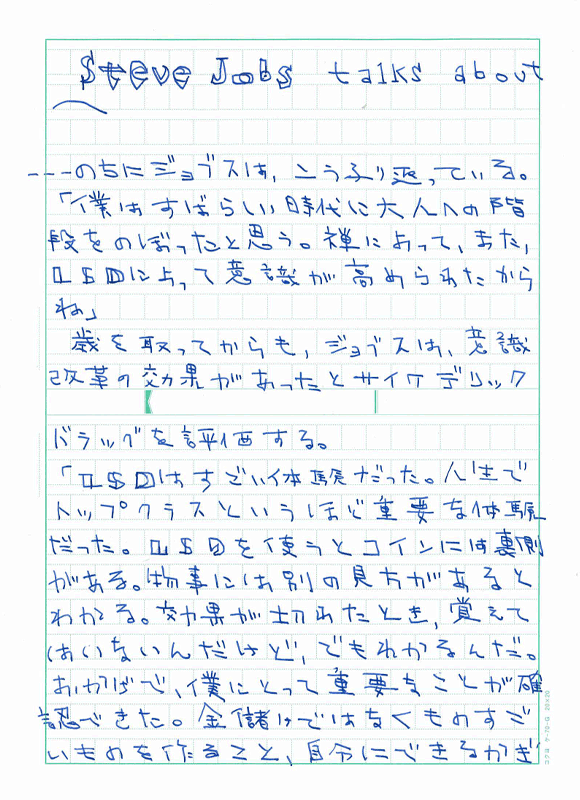 Steve Jobs talks about
---のちにジョブスは、こうふり返っている。
「僕はすばらしい時代に大人への階
段をのぼったと思う。禅によって、また、
LSDによって意識が高められたから
ね」
歳を取ってからも、ジョブスは、意識
改革の効果があったとサイケデリック
ドラッグを評価する。
「LSDはすごい体験だった。人生で
トップクラスというほど重要な体験
だった。LSDを使うとコインには裏側
がある。物事には別の見方があると
わかる。効果が切れたとき、覚えて
はいないんだけど、でもわかるんだ。
おかげで、僕にとって重要なことが確
認できた。金儲けではなくものすご
いものを作ること、自分にできるかぎ